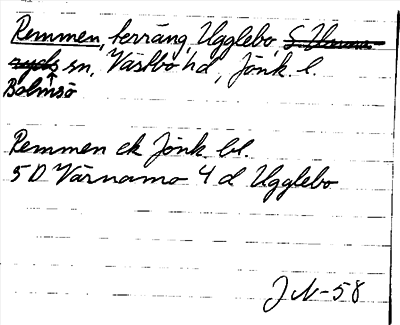 Remmen, terräng, Ugglebo,
sn, Västbo hd, Jönk. l.
Bolmsö
Remmen ek Jönk. bl.
5 D Värnamo 4 d Ugglebo
JN-58